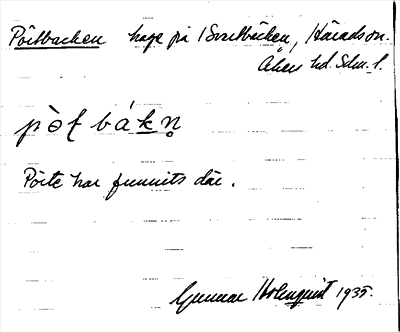 Pörtbacken hage på 1 Svartbäcken, Häradson.
Åkers hd. Sdm. l.
pò̀ṭ bákn̥
Pörte har funnits där.
Gunnar Holmquist 1935.